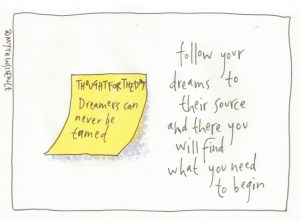 @MYTHWISENCE
THOUGHT FOR THE DAY
Dreamers can
never be
tamed
follow your
dreams to
their source
and there you
will find
what you need
to begin